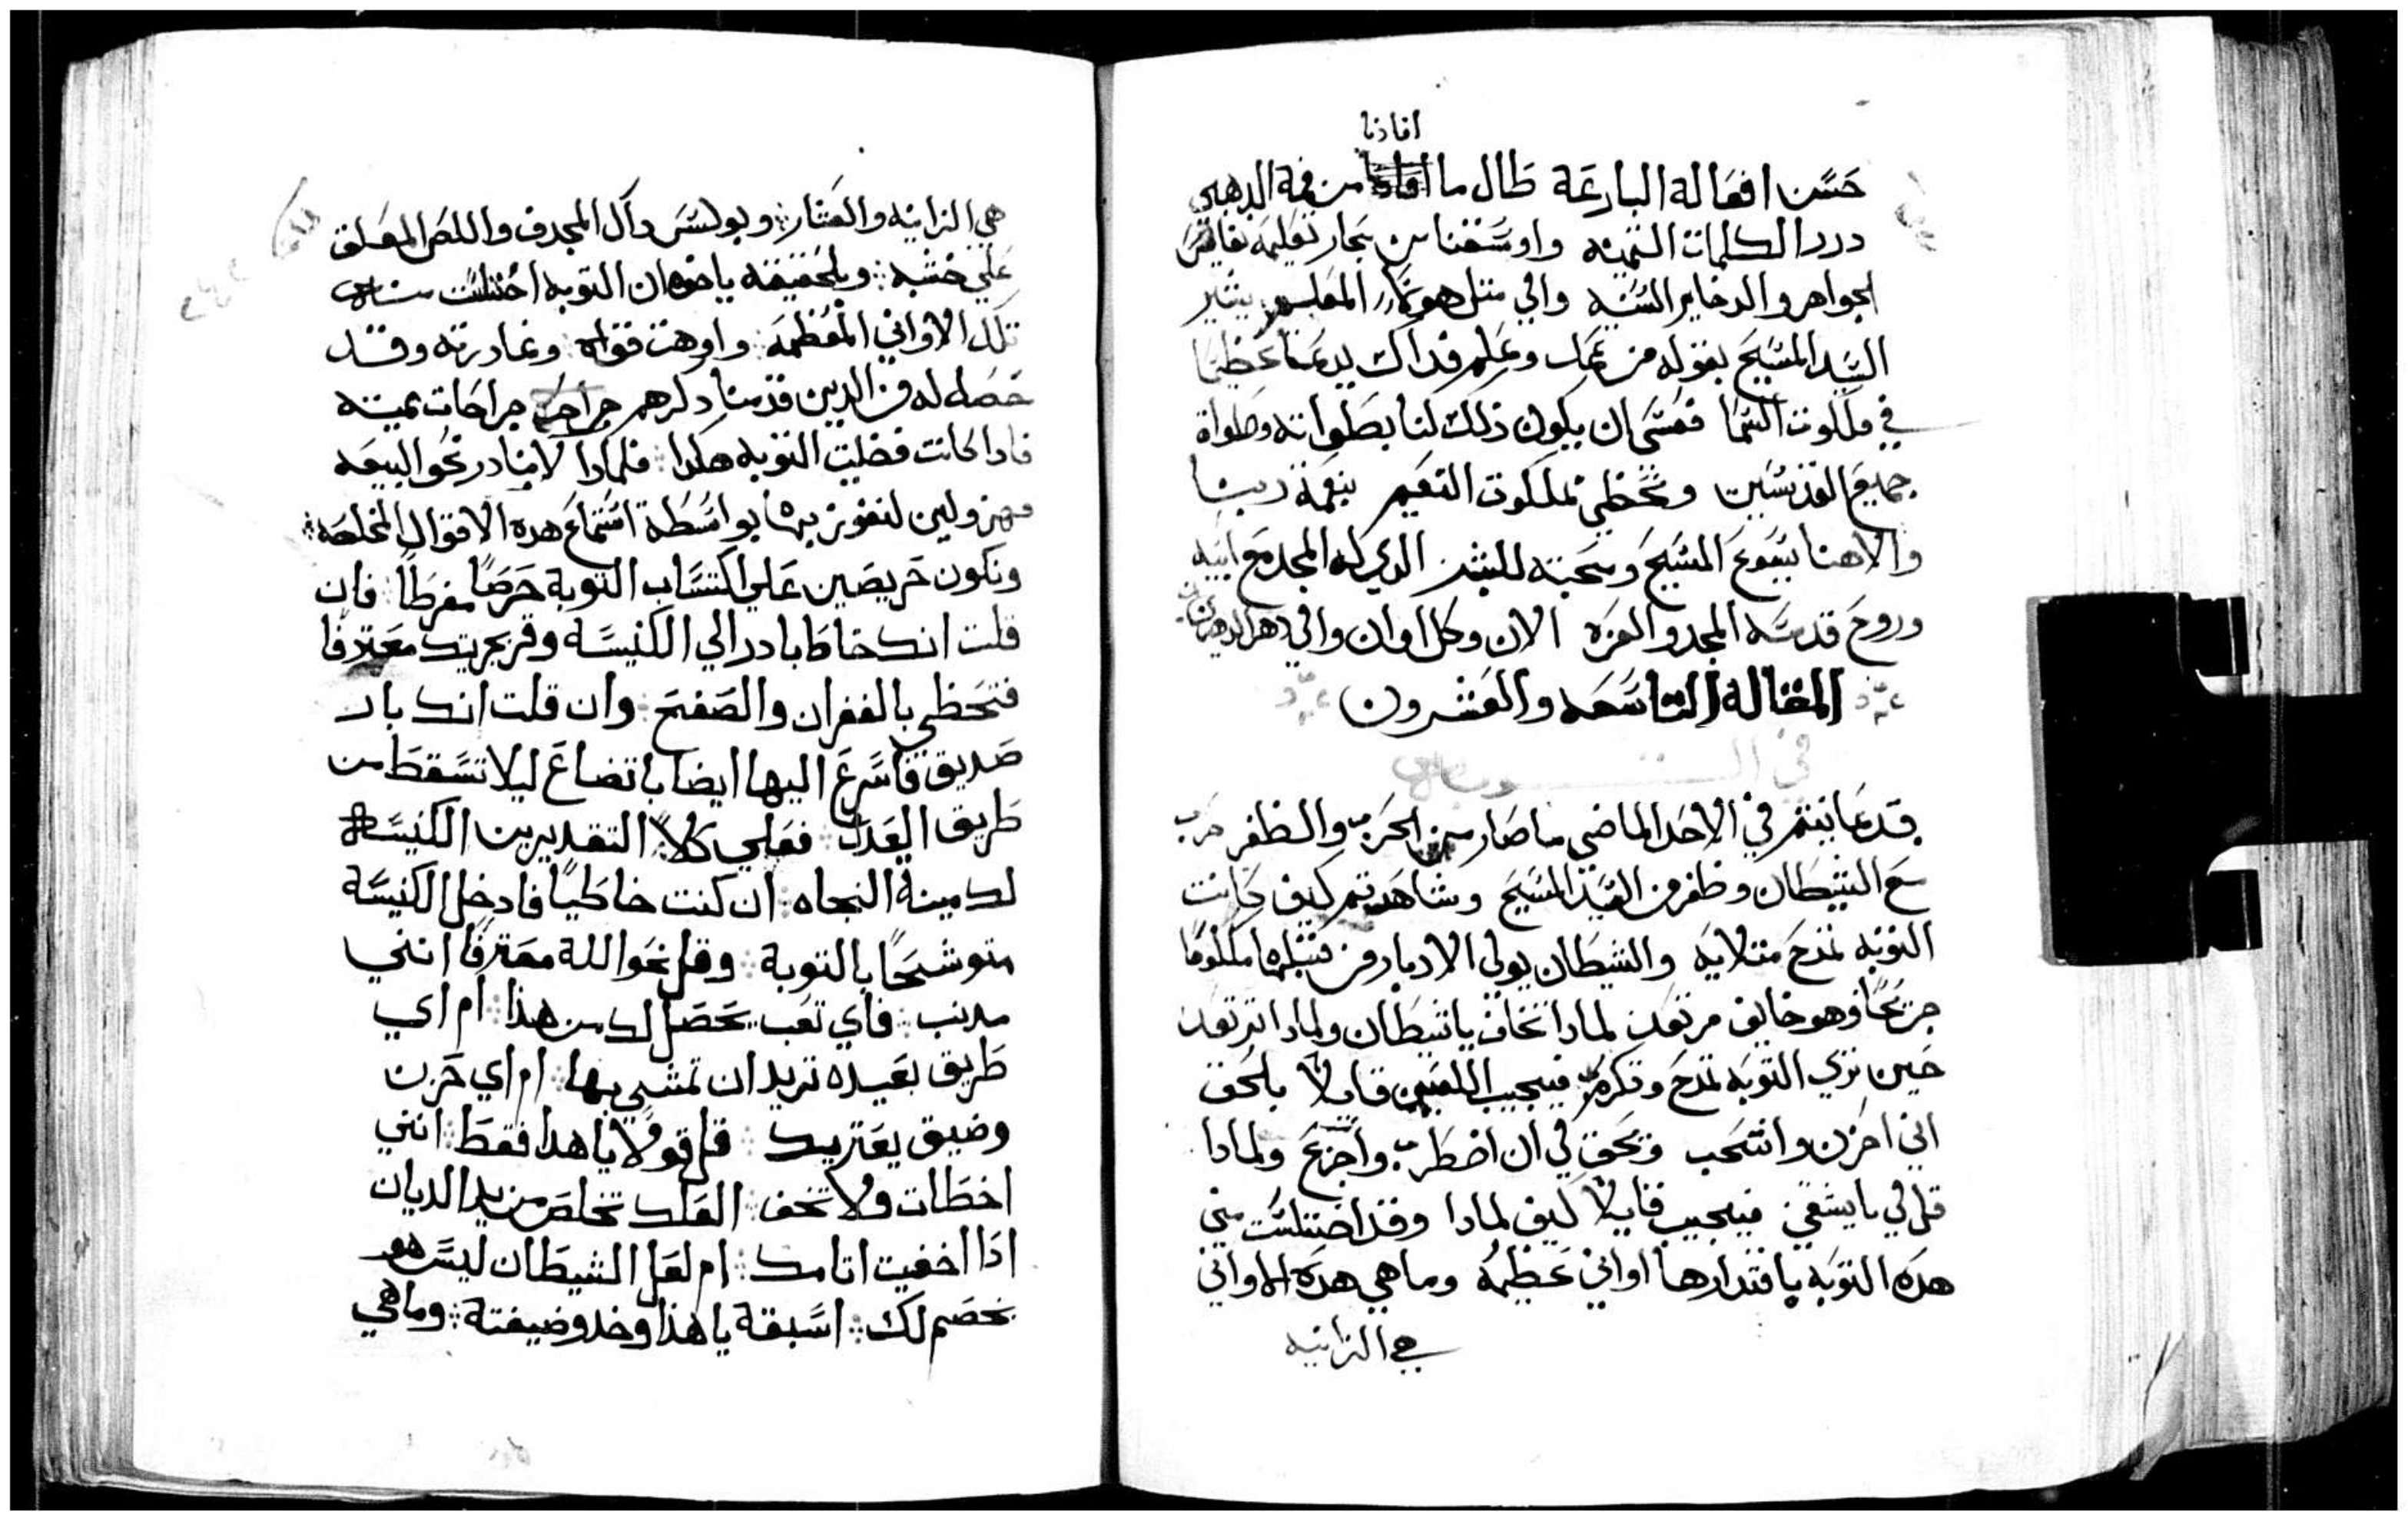 افادنا
حسن افعاله البارعة طال ما من فمة الدهبي
درر الكلمات التمينه واوسقنا من بحار تعليمه نفايس
الجواهر والدخاير السنيه والي متل هولاء المعلمين يشير
السيد المسيح بقوله من عمل وعلم فداك يدعا عظيمًا
في ملكوت السما فعسى ان يكون ذلك لنا بصلواته وصلواة
جميع القديسين ونحظي بملكوت النعيم بنعمة ربنا
والاهنا يسوع المسيح ومحبته للبشر الدي له المجد مع ابيه
وروح قدسه المجد والعزه الان وكل اوان والي دهر الداهرين
المقالة التاسعه والعشرون
في التوبه
قد عاينتم في الاحد الماضي ما صار من الحرب والظفر حرب
مع الشيطان وظفر من السيد المسيح وشاهدتم كيف كانت
التوبه تمدح متلاليه والشيطان يولي الادبار من قبلها مكلومًا
جزعًا وهو خايف مرتعد لمادا تخاف يا شيطان ولمادا ترتعد
حين تري التوبه تمدح وتكرم فيجيب اللعين قايلاً بالحق
اني احزن وانتحب ويحق لي ان اضطرب واجزع ولمادا
قل لي يا شقي فيجيب قايلاً كيف لمادا وقد اختلست مني
هده التوبه باقتدارها اواني عظيمه وما هي هده الاواني
هي الزانيه
هي الزانيه والعشار وبولس داك المجدف واللص المعلق
علي خشبه وبالحقيقه يا اخوه ان التوبه اختلست منه
تلك الاواني المعظمه واوهنت قواه وغادرته وقد
حصله له من الدين قدمنا دكرهم جراحات مميته
فادا كانت فضلت التوبه هكدا فلمادا لا نبادر نحو البيعه
مهرولين لنفوز بها بواسطة استماع هده الاقوال المخلصه
ونكون حريصين علي اكتساب التوبة حرصًا مفرطًا فان
قلت انك خاطا بادر الي الكنيسة وقر بجريتك معترفا
فتحظي بالغفران والصفح وان قلت انك بار
صديق فاسرع اليها ايضا باتضاع ليلا تسقط من
طريق العدل فعلي كلا التقديرين الكنيسة
لك مينة النجاه ان كنت خاطيًا فادخل الكنيسة
متوشحًا بالتوبة وقل نحو الله معترفًا انني
مدنب فاي تعب يحصل لك من هذا ام اي
طريق بعيده تريد ان تمشي بها ام اي حزن
وضيق يعتريك قل قولاً يا هدا فقط انني
اخطات ولا تخف العلك تخلص من يد الديان
اذا اخفيت اتامك ام لعل الشيطان ليس هو
بخصم لك اسبقة يا هذا وخد وضيفتة وما هي